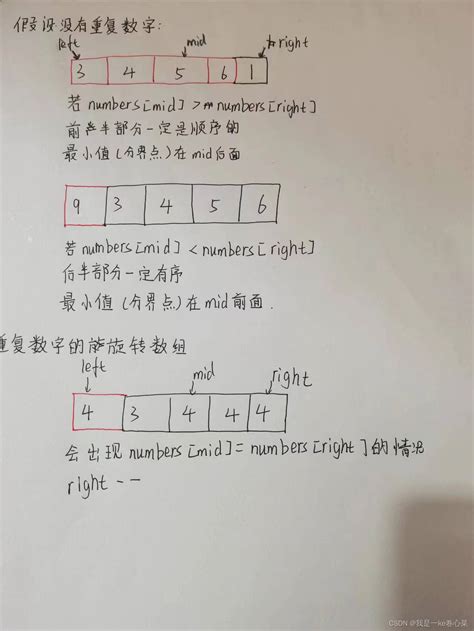 假设没有重复数字:
left mid right
3 4 5 6 1
若numbers[mid]>numbers[right]
前半部分一定是顺序的
最小值(分界点)在mid后面
9 3 4 5 6
若numbers[mid]<numbers[right]
后半部分一定有序
最小值(分界点)在mid前面.
重复数字的旋转数组
left mid right
4 3 4 4 4
会出现numbers[mid]=numbers[right]的情况
right--
CSDN @我是一ke卷心菜